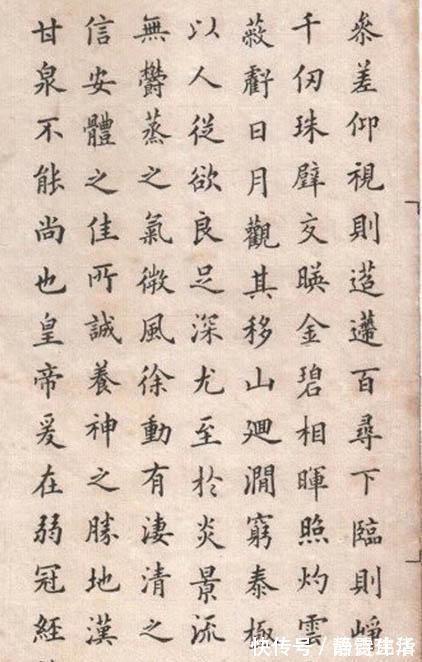 叅差仰視則迢遰百尋下臨則崢
千仞珠壁交暎金碧相暉照灼雲
蔽虧日月觀其移山廻澗窮泰極
以人從欲良足深尤至於炎景流
無欝蒸之氣微風徐動有淒清之
信安體之佳所誠養神之勝地漢
甘泉不能尚也皇帝爰在弱冠經
快传号 /